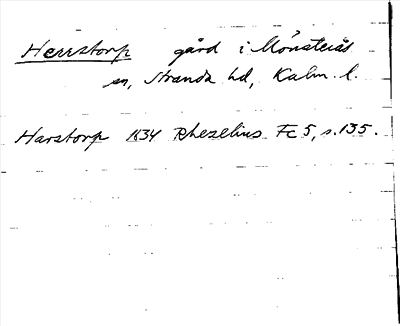 Herrstorp gård i Mönsterås
sn, Stranda hd, Kalm. l.
Harstorp 1634 Rhezelius Fc 5, s. 135.